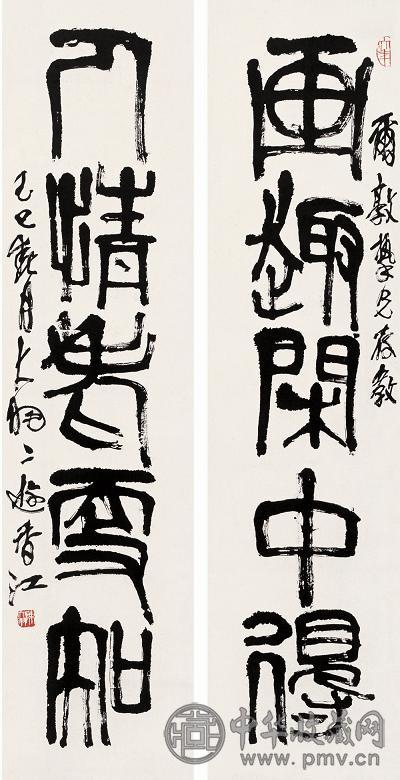 爾敦摯兄存教
画趣閑中得
人情老更知
乙巳 月大羽二游香江
中华收藏网
www.pmv.cn